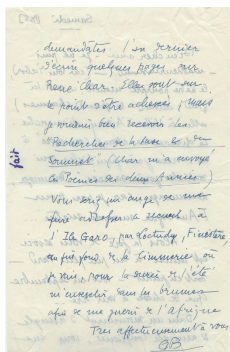 demandates l'an dernier
d'écrire quelques pages sur
René Char. Elles sont sur
le point d'être achevées, mais
je voudrais bien recevoir les
Recherche de la Base et du
Sommet (Char m'a envoyé
les Poèmes des deux Années)
Vous serez un ange de me
faire adresser le recueil à
l'Ile Garo, par Lesconil, Finistère,
au fin fond de la Simmerie où
je suis, pour la durée de l'été
m'ensevelir dans les brumes
afin de me guérir de l'Afrique
Très affectueusement à vous
fait